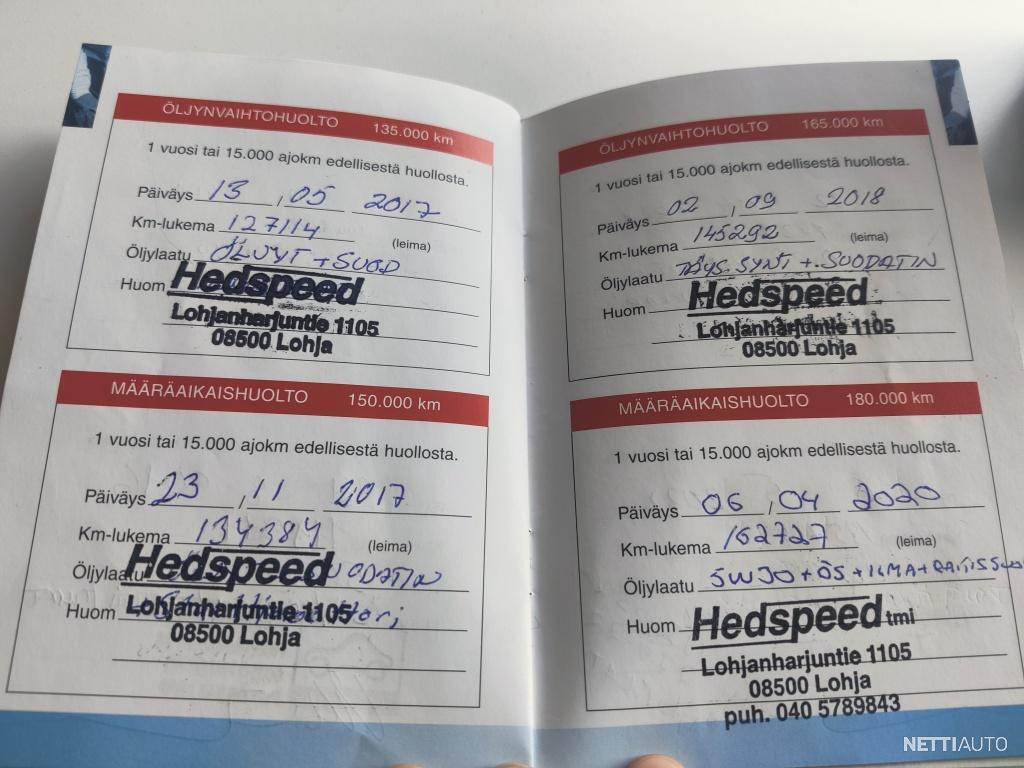 ÖLJYNVAIHTOHUOLTO 135.000 km
1 vuosi tai 15.000 ajokm edellisestä huollosta.
Päiväys 13 , 05 2017
Km-lukema 127114 (leima)
Öljylaatu ÖLJYT + SUOD
Huom
Hedspeed
Lohjanharjuntie 1105
08500 Lohja
MÄÄRÄAIKAISHUOLTO 150.000 km
1 vuosi tai 15.000 ajokm edellisestä huollosta.
Päiväys 23 , 11 2017
Km-lukema 134384 (leima)
Öljylaatu
Huom
Hedspeed
Lohjanharjuntie 1105
08500 Lohja
ÖLJYNVAIHTOHUOLTO 165.000 km
1 vuosi tai 15.000 ajokm edellisestä huollosta.
Päiväys 02 , 09 2018
Km-lukema 145292 (leima)
Öljylaatu TÄYS. SYNT + SUODATIN
Huom
Hedspeed
Lohjanharjuntie 1105
08500 Lohja
MÄÄRÄAIKAISHUOLTO 180.000 km
1 vuosi tai 15.000 ajokm edellisestä huollosta.
Päiväys 06 , 04 2020
Km-lukema 162727 (leima)
Öljylaatu 5W30 + ÖS + ILMA +
Huom
Hedspeed tmi
Lohjanharjuntie 1105
08500 Lohja
puh. 040 5789843
NETTIAUTO